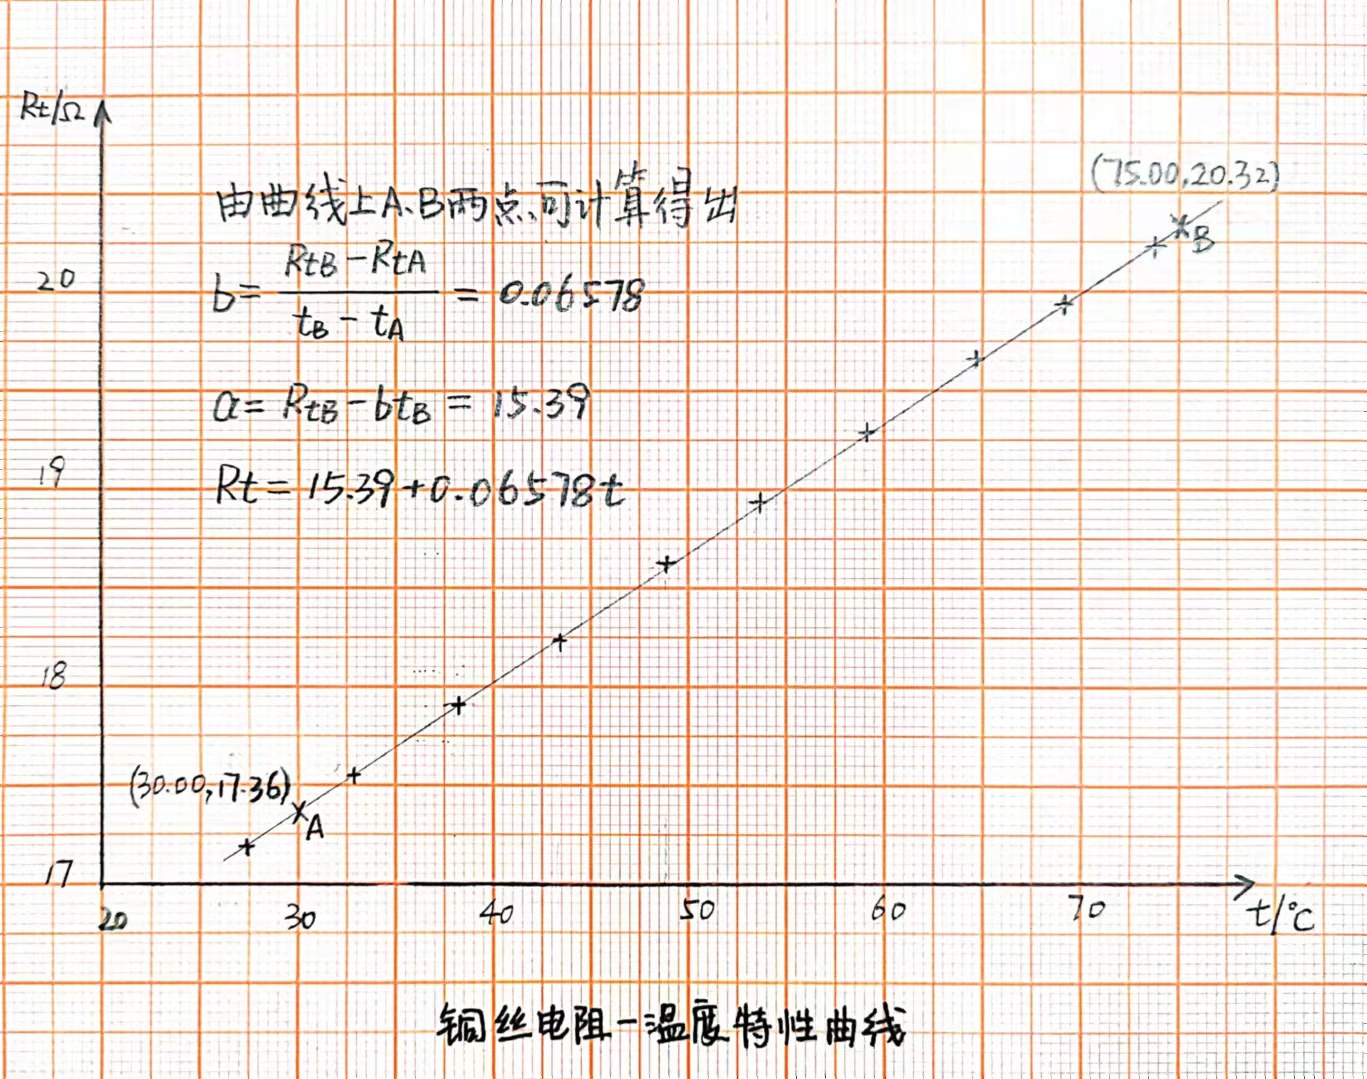 Rt/Ω
(75.00,20.32)
由曲线上A、B两点可计算得出
b = (RtB - RtA) / (tB - tA) = 0.06578
B
20
a = RtB - btB = 15.39
19
Rt = 15.39 + 0.06578t
18
(30.00,17.36)
A
17
20 30 40 50 60 70 t/°C
铜丝电阻-温度特性曲线